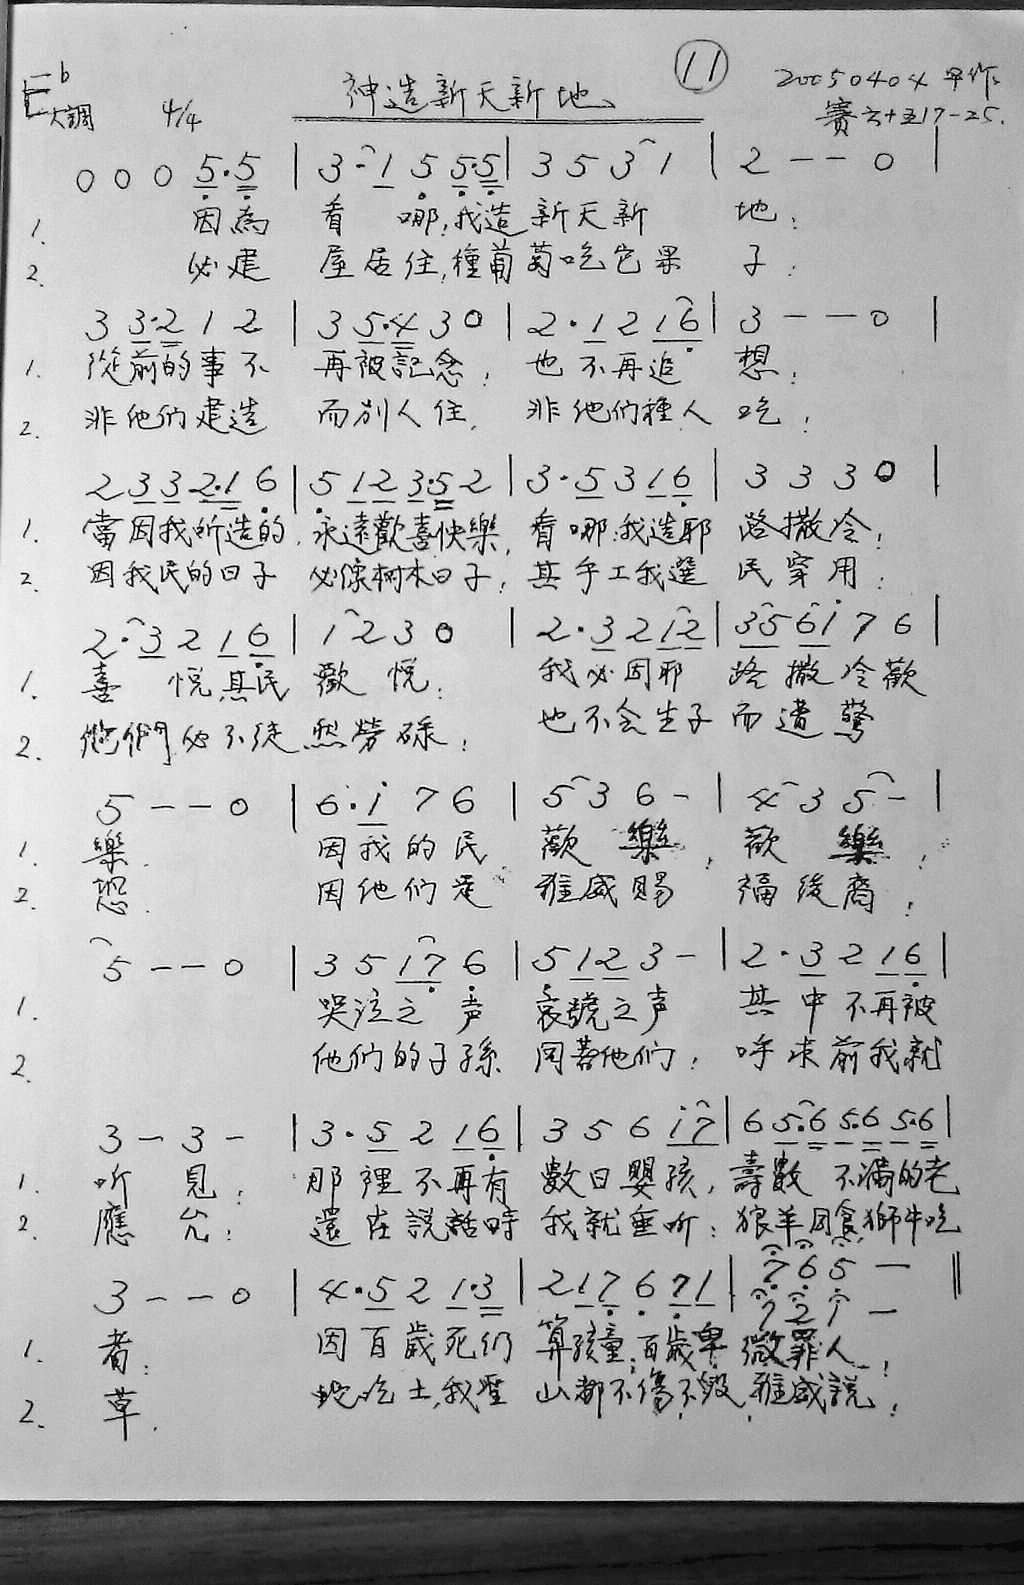 11
E♭大調 4/4 神造新天新地 20050404 早作
賽六十五17-25.
0 0 0 5·5 | 3·1 5 5·5 | 3 5 3 1 | 2 - - 0 |
1. 因為 看 哪,我造 新天新 地;
2. 必建 屋居住,種葡萄吃它果 子;
3 3·2 1 2 | 3 5·4 3 0 | 2·1 2 1 6 | 3 - - 0 |
1. 從前的事不 再被記念; 也不再追 想;
2. 非他们建造 而别人住, 非他们種人 吃;
2 3 3 2·1 6 | 5 1 2 3·5 2 | 3·5 3 1 6 | 3 3 3 0 |
1. 當因我所造的,永遠歡喜快樂,看哪,我造耶 路撒冷;
2. 因我民的日子 必像樹木日子;其手工我選 民享用;
2·3 2 1 6 | 1 2 3 0 | 2·3 2 1 2 | 3 5 6 i 7 6 |
1. 喜 悦其民 歡 悦; 我必因耶 路撒冷歡
2. 他們必不徒然勞碌; 也不会生子而遭驚
5 - - 0 | 6·i 7 6 | 5 3 6 - | 4 3 5 - |
1. 樂. 因我的民 歡 樂, 歡 樂;
2. 恐. 因他们是 雅威賜 福後裔;
5 - - 0 | 3 5 1 7 6 | 5 1 2 3 - | 2·3 2 1 6 |
1. 哭泣之声 哀號之声 其中不再被
2. 他们的子孫 同著他们; 呼求前我就
3 - 3 - | 3·5 2 1 6 | 3 5 6 i 7 | 6 5·6 5·6 5·6 |
1. 听 見; 那裡不再有 數日嬰孩,壽數 不滿的老
2. 應 允; 還在説話時 我就垂听;狼羊同食,獅牛吃
7 6 5 -
3 - - 0 | 4·5 2 1·3 | 2 1 7 6 7 1 | 7 2 1 - ||
1. 者; 因百歲死仍 算孩童;百歲卑 微罪人;
2. 草. 蛇吃土,我聖 山都不傷不毁,雅威説;